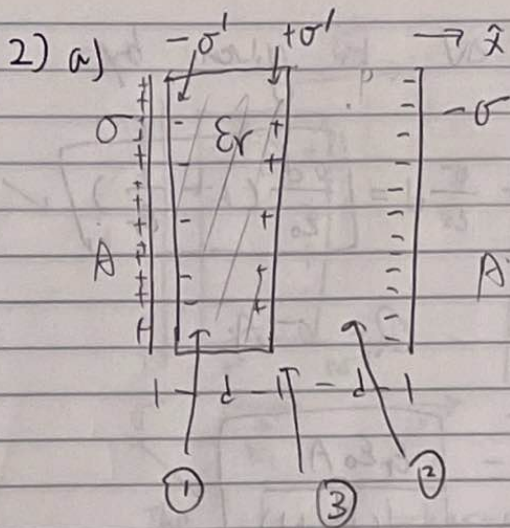 2) a) -σ' +σ' → x̂
σ εr -σ
A A
|- d -|- d -|
① ③ ②